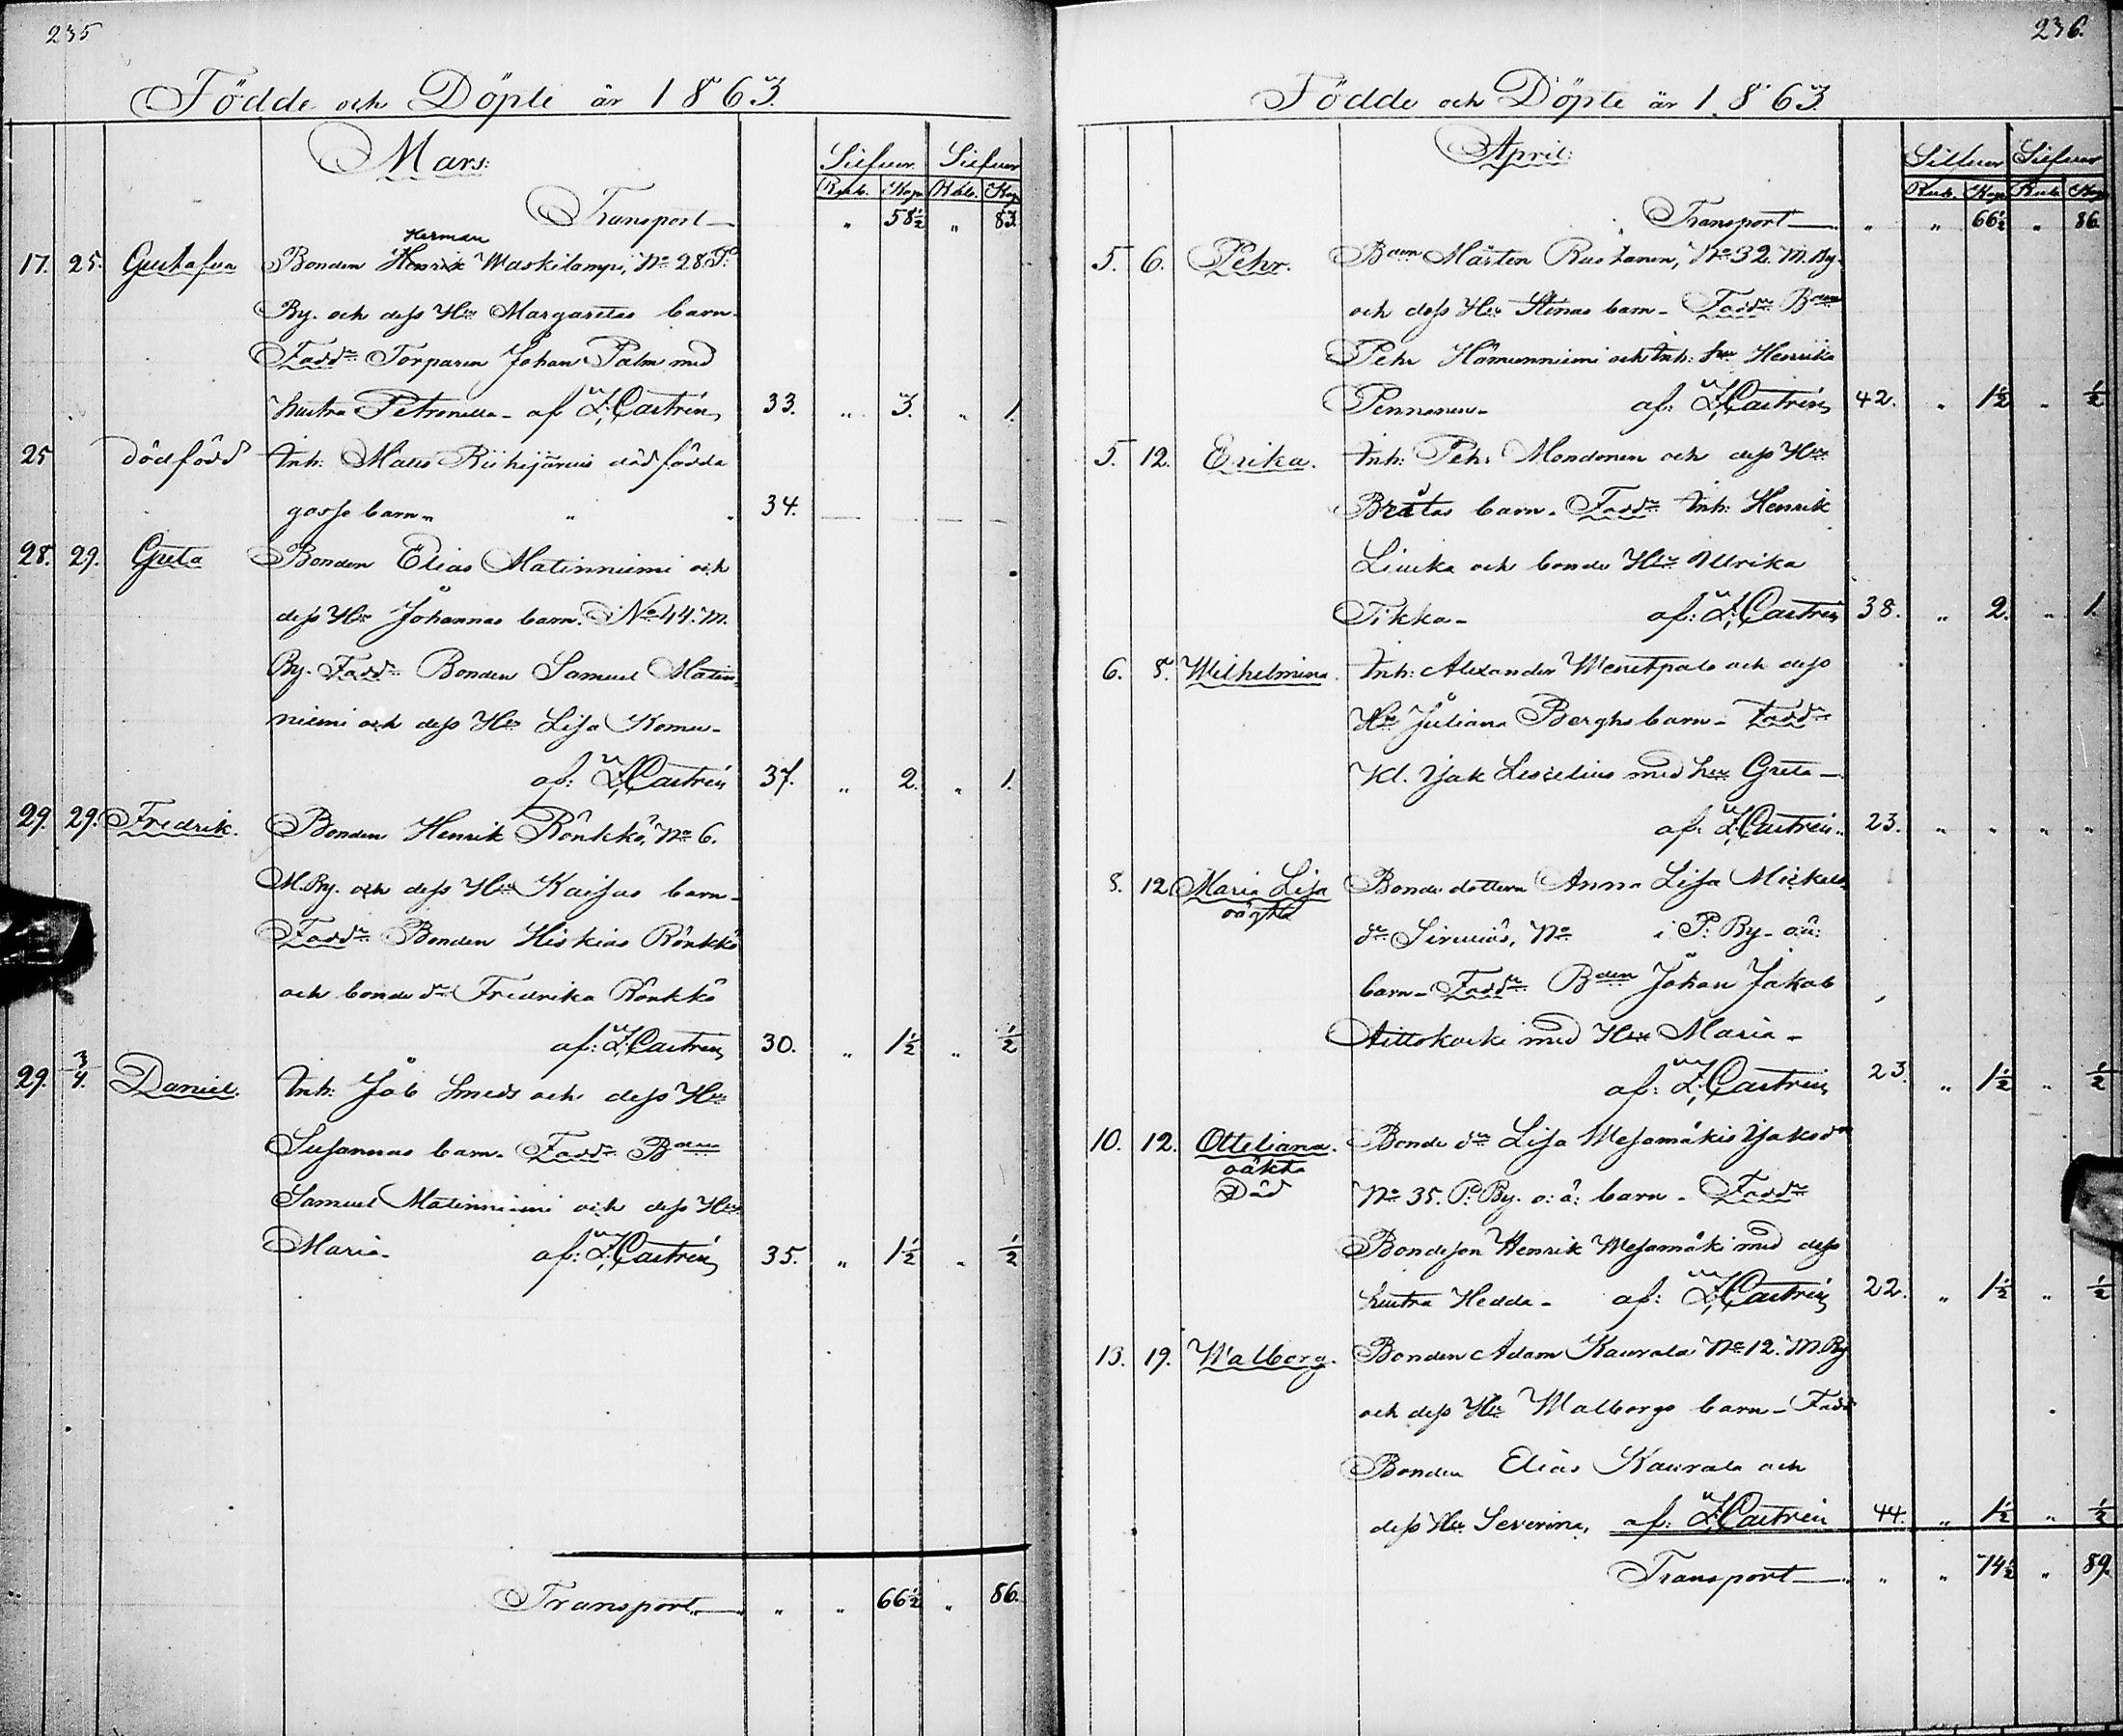 235
Födde och Döpte år 1863.
Mars:
Silfver. Silfver
Rub. Kop. Rub. Kop
Transport — " 58½ " 83.
Herman
17. 25. Gustafva Bonden Henrik Waskilampi, No 28. P:
By. och dess Hu Margaretas barn.
Fadd: Torparen Johan Palm med
hustru Petronella - af Z, Castrén 33. " 3. " 1.
25 dödfödd Inh: Mats Riihijärvis dödfödda
gosse barn - " " 34. — — —
28. 29. Greta Bonden Elias Matinniemi och
dess Hu Johannas barn. No 44. M.
By. Fadd: Bonden Samuel Matin-
niemi och dess Hu Lisa Komu-
af: Z, Castrén 37. " 2. " 1.
29. 29. Fredrik. Bonden Henrik Rönkkö, No 6.
M. By. och dess Hu Kaisas barn -
Fadd: Bonden Hiskias Rönkkö
och bonde dr Fredrika Rönkkö
af: Z, Castrén 30. " 1½ " ½
29. 3/4. Daniel. Inh: Job Smeds och dess Hu
Susannas barn. Fadd: Bden
Samuel Matinniemi och dess Hu
Maria - af: Z, Castrén 35. " 1½ " ½
Transport — " " 66½ " 86.
236.
Födde och Döpte år 1863.
April:
Silfver Silfver
Rub. Kop Rub. Kop
Transport — " " 66½ " 86
5. 6. Pehr. Bden Mårten Rustanen, No 32. M. By.
och dess Hu Stinas barn - Fadd: Bden
Pehr Hämunniemi och Inh: hu Henrika
Pennanen - af: Z, Castrén 42. " 1½ " ½
5. 12. Erika. Inh: Pehr Mondonen och dess Hu
Britas barn. Fadd: Inh: Henrik
Liukka och bonde Hu Ulrika
Tikka - af: Z, Castrén 38. " 2. " 1.
6. 8. Wilhelmina. Inh: Alexander Wenetpalo och dess
Hu Juliana Berghs barn - Fadd:
Kl. Isak Lescelius med hu Greta —
af: Z, Castrén. 23. " " " "
8. 12. Maria Lisa Bonde dottern Anna Lisa Mickels
oägta dr Sirviös, No i P: By - o.ä:
barn - Fadd: Bden Johan Jakob
Aittokoski med Hu Maria -
af: Z, Castrén 23. " 1½ " ½
10. 12. Otteliana. Bonde dr Lisa Mesomäkis Isaksdr
oäkta
Död No 35. P: By. o: ä: barn - Fadd:
Bondeson Henrik Mesomäki med dess
hustru Hedda - af: Z, Castrén 22. " 1½ " ½
13. 19. Walborg. Bonden Adam Kaurala No 12. M. By
och dess Hu Walborgs barn - Fadd
Bonden Elias Kaurala och
dess Hu Severina, af: Z, Castrén 44. " 1½ " ½
Transport — " " 74½ " 89.